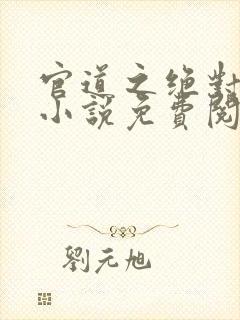 官道之绝對
小說免費閱
劉元旭